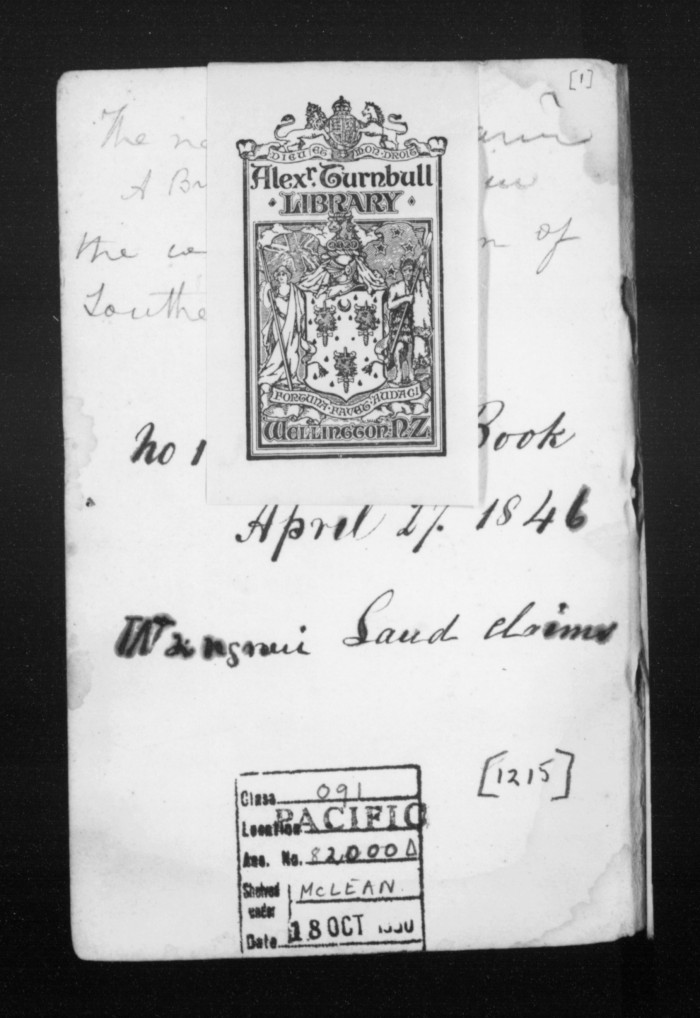 [1]
The
A Br
the                    of
Southe
DIEU ET MON DROIT
Alexr. Turnbull
· LIBRARY ·
FORTUNA FAVET AUDACI
WELLINGTON. N.Z.
No 1        Book
April 27. 1846
Wanganui Land claims
[1215]
Class 091
Location PACIFIC
Acc. No. 82,000 Δ
Shelved under McLEAN.
Date 18 OCT